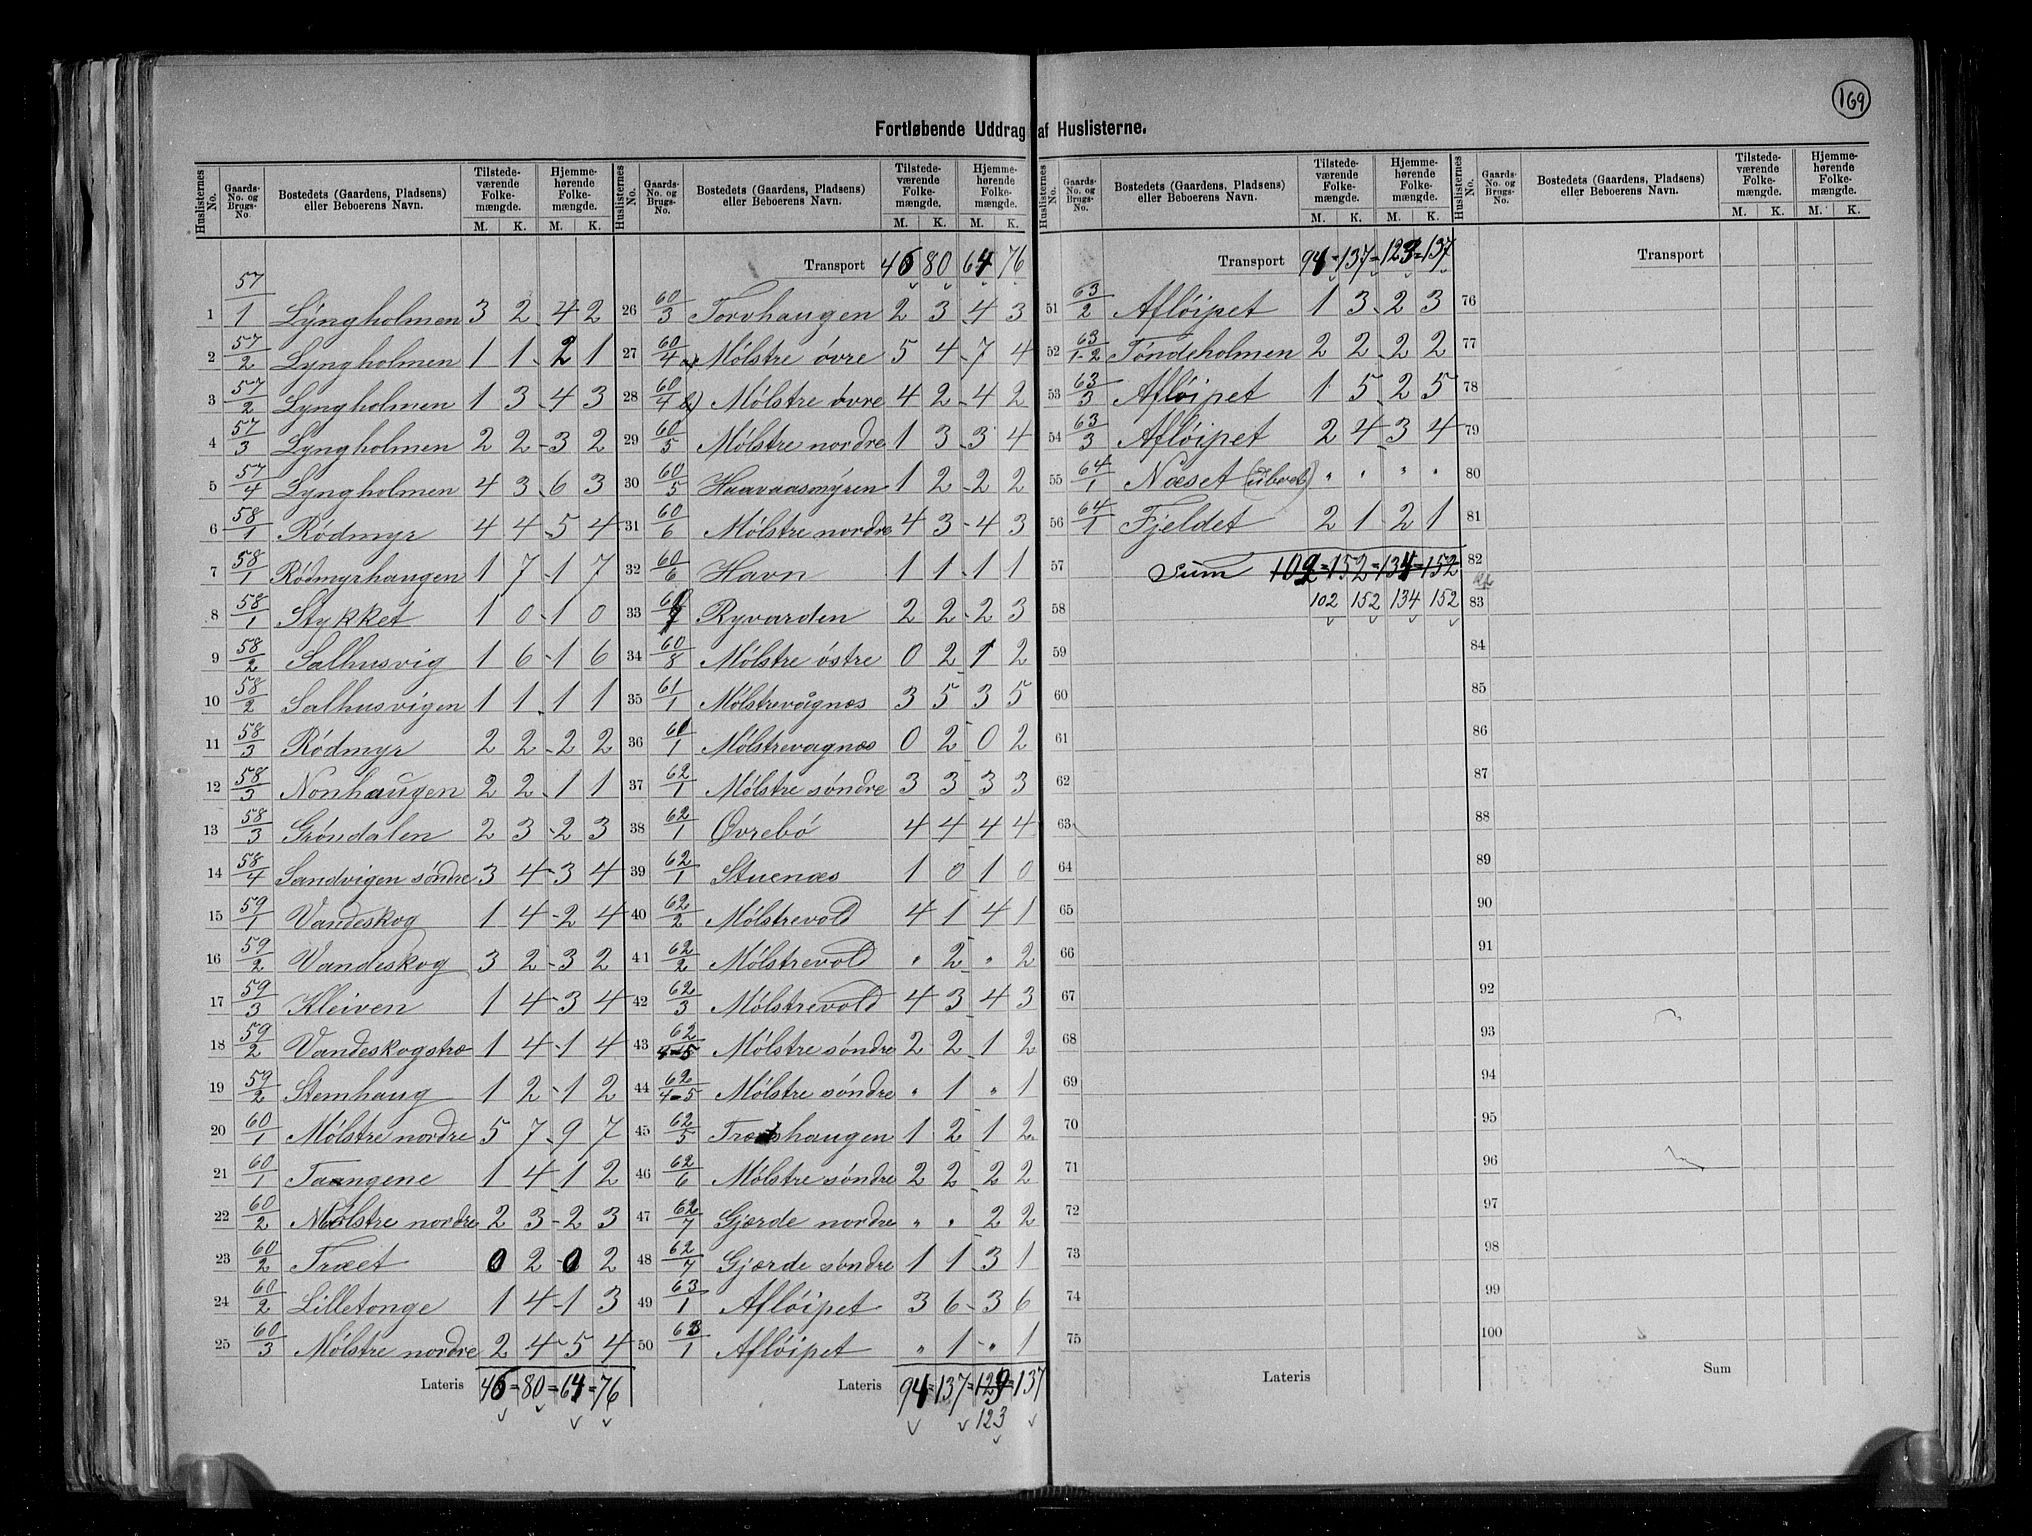 169
Fortløbende Uddrag af Huslisterne.
Huslisternes No. | Gaards-No. og Brugs-No. | Bostedets (Gaardens, Pladsens) eller Beboerens Navn. | Tilstedeværende Folkemængde. M. K. | Hjemmehørende Folkemængde. M. K.
1 57/1 Lyngholmen 3 2 - 4 2
2 57/2 Lyngholmen 1 1 - 2 1
3 57/2 Lyngholmen 1 3 - 4 3
4 57/3 Lyngholmen 2 2 - 3 2
5 57/4 Lyngholmen 4 3 - 6 3
6 58/1 Rødmyr 4 4 - 5 4
7 58/1 Rødmyrhaugen 1 7 - 1 7
8 58/1 Stykket 1 0 - 1 0
9 58/2 Salhusvig 1 6 - 1 6
10 58/2 Salhusvigen 1 1 - 1 1
11 58/3 Rødmyr 2 2 - 2 2
12 58/3 Nonhaugen 2 2 - 1 1
13 58/3 Grøndalen 2 3 - 2 3
14 58/4 Sandvigen søndre 3 4 - 3 4
15 59/1 Vandeskog 1 4 - 2 4
16 59/2 Vandeskog 3 2 - 3 2
17 59/3 Kleiven 1 4 - 3 4
18 59/2 Vandeskogstræ 1 4 - 1 4
19 59/2 Stemhaug 1 2 - 1 2
20 60/1 Mølstre nordre 5 7 - 9 7
21 60/1 Taangene 1 4 - 1 2
22 60/2 Mølstre nordre 2 3 - 2 3
23 60/2 Træet 0 2 - 0 2
24 60/2 Lilletonge 1 4 - 1 3
25 60/3 Mølstre nordre 2 4 - 5 4
Lateris 46 = 80 = 64 = 76
Huslisternes No. | Gaards-No. og Brugs-No. | Bostedets (Gaardens, Pladsens) eller Beboerens Navn. | Tilstedeværende Folkemængde. M. K. | Hjemmehørende Folkemængde. M. K.
Transport 46 80 64 76
26 60/3 Torvhaugen 2 3 - 4 3
27 60/4 Mølstre øvre 5 4 - 7 4
28 60/4 Mølstre øvre 4 2 - 4 2
29 60/5 Mølstre nordre 1 3 - 3 4
30 60/5 Haavaasmyren 1 2 - 2 2
31 60/6 Mølstre nordre 4 3 - 4 3
32 60/6 Havn 1 1 - 1 1
33 60/7 Ryvarden 2 2 - 2 3
34 60/8 Mølstre østre 0 2 1 2
35 61/1 Mølstrevågnes 3 5 3 5
36 61/1 Mølstrevagnæs 0 2 0 2
37 62/1 Mølstre søndre 3 3 3 3
38 62/1 Øvrebø 4 4 4 4
39 62/1 Stuenæs 1 0 1 0
40 62/2 Mølstrevold 4 1 4 1
41 62/2 Mølstrevold " 2 " 2
42 62/3 Mølstrevold 4 3 4 3
43 62/4-5 Mølstre søndre 2 2 1 2
44 62/4-5 Mølstre søndre " 1 " 1
45 62/5 1 2 1 2
46 62/6 Mølstre søndre 2 2 2 2
47 62/7 Gjærde nordre " " 2 2
48 62/7 Gjærde søndre 1 1 3 1
49 63/1 Afløipet 3 6 - 3 6
50 63/1 Afløipet " 1 - " 1
Lateris 94 = 137 = 129 = 137
123
Huslisternes No. | Gaards-No. og Brugs-No. | Bostedets (Gaardens, Pladsens) eller Beboerens Navn. | Tilstedeværende Folkemængde. M. K. | Hjemmehørende Folkemængde. M. K.
Transport 94 = 137 = 123 = 137
51 63/2 Afløipet 1 3 - 2 3
52 63/1-2 Tøndeholmen 2 2 - 2 2
53 63/3 Afløipet 1 5 - 2 5
54 63/3 Afløipet 2 4 - 3 4
55 64/1 Næset " " " "
56 64/1 Fjeldet 2 1 - 2 1
57 Sum 102 = 152 = 134 = 152
58 102 152 134 152
59
60
61
62
63
64
65
66
67
68
69
70
71
72
73
74
75
Lateris
Huslisternes No. | Gaards-No. og Brugs-No. | Bostedets (Gaardens, Pladsens) eller Beboerens Navn. | Tilstedeværende Folkemængde. M. K. | Hjemmehørende Folkemængde. M. K.
Transport
76
77
78
79
80
81
82
83
84
85
86
87
88
89
90
91
92
93
94
95
96
97
98
99
100
Sum